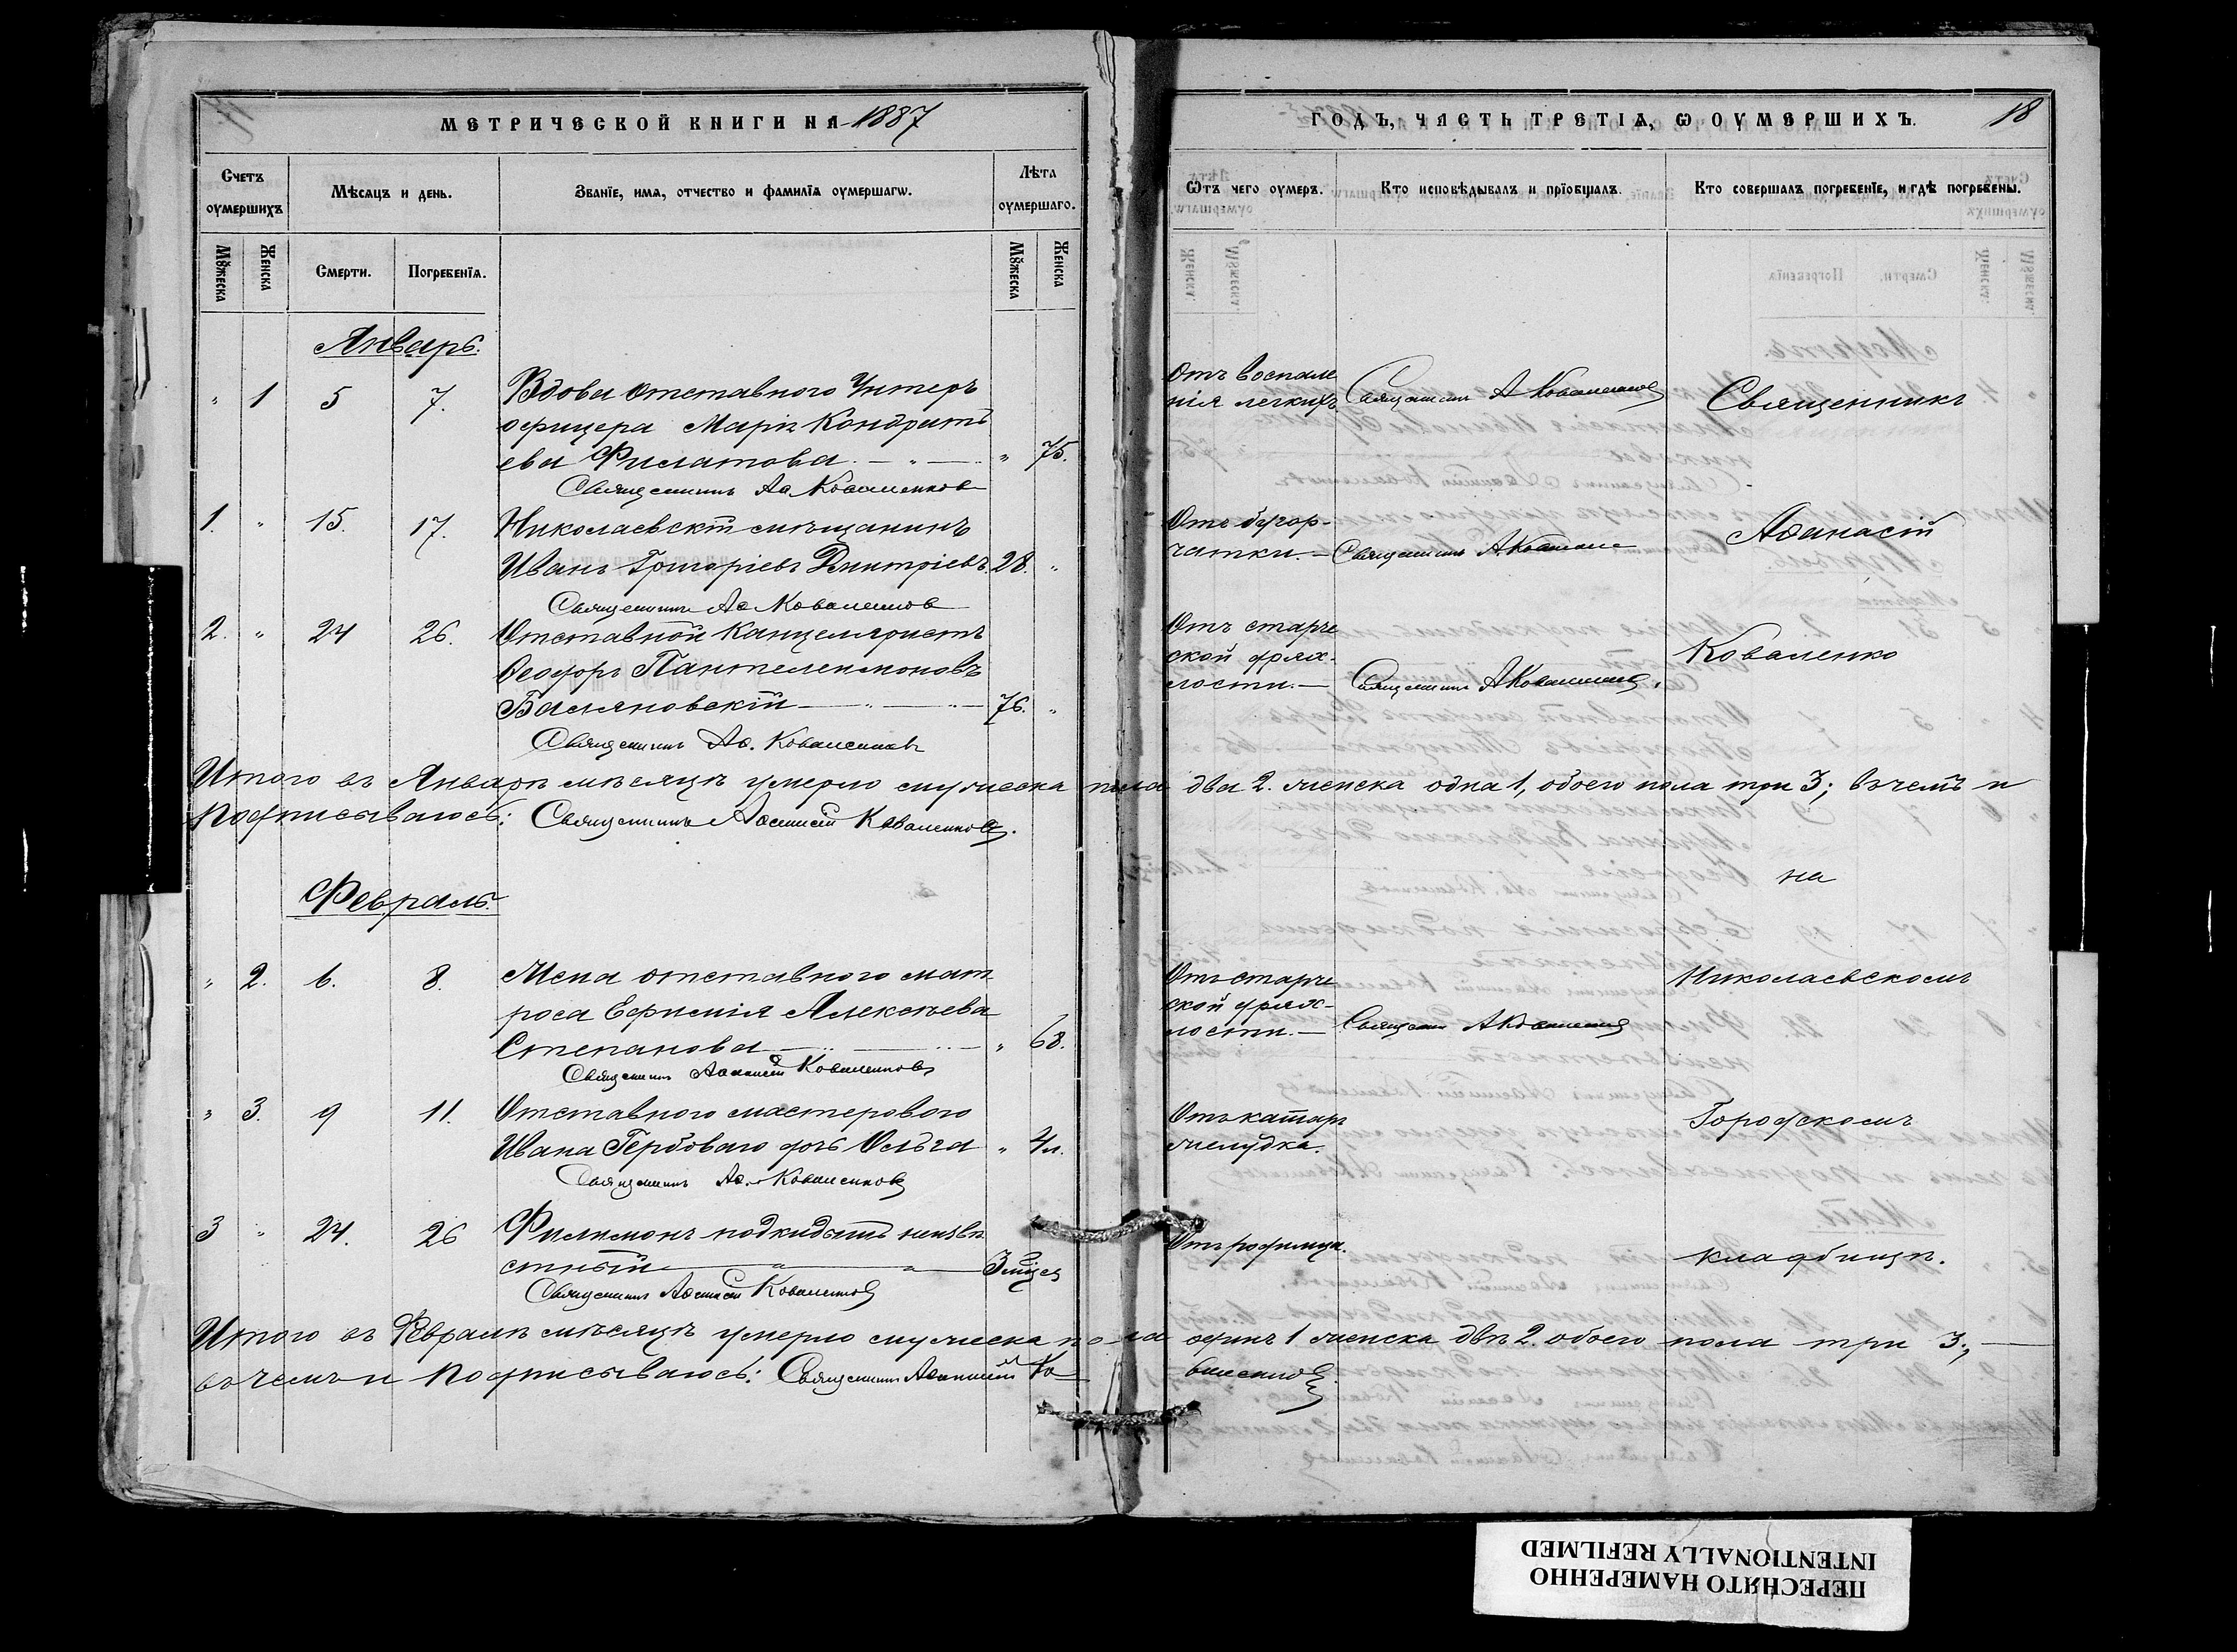 МЕТРИЧЕСКОЙ КНИГИ НА 1887
ГОДЪ, ЧАСТЬ ТРЕТІЯ, Ѡ ОУМЕРШИХЪ.
18
Счетъ оумершихъ
Мѣсяцъ и день.
Званїе, имя, отчество и фамилїя оумершагѡ.
Лѣта оумершаго.
Ѿтъ чего оумеръ.
Кто исповѣдывалъ и прїобщалъ.
Кто совершалъ погребенїе, и гдѣ погребены.
Мꙋжеска
Женска
Смерти.
Погребенїя.
Мꙋжеска
Женска
Январь.
" 1 5 7. Вдова отставного Унтеръ
офицера Марія Кондрать
ева Филатова " 75.
Священникъ Аѳ Коваленковъ
Отъ воспале
нія легкихъ
Священникъ А Коваленковъ
Священникъ
1. " 15. 17. Николаевскій мѣщанинъ
Иванъ Григоріевъ Дмитріевъ. 28. "
Священникъ Аѳ Коваленковъ
Отъ бугор-
чатки.
Священникъ А Коваленко
Аѳанасій
2. " 24 26. Отставной канцеляристъ
Ѳеодоръ Пантелеимоновъ
76. "
Священникъ Аѳ. Коваленковъ
Отъ старче
ской дрях-
лости.
Священникъ А Коваленковъ
Коваленко
Итого въ Январѣ мѣсяцѣ умерло мужеска пола два 2. женска одна 1, обоего пола три 3; въ чемъ и
подписываюсь: Священникъ Аѳанасій Коваленковъ.
на
Февраль.
" 2. 6. 8. Жена отставного мат
роса Евфимія Алексѣева
Степанова " 68.
Священникъ Аѳанасій Коваленковъ
Отъ старче
ской дрях-
лости.
Священникъ А Коваленковъ
Николаевскомъ
" 3. 9 11. Отставного мастерового
Ивана Гербоваго дочь Ольга " 4 л.
Священникъ Аѳ. Коваленковъ
Отъ катаръ
желудка.
Городскомъ
3 " 24. 26 Филимонъ подкидышъ неизвѣ
стный 3 мѣсц
Священникъ Аѳанасій Коваленковъ
Отъ родимца.
кладбищѣ.
Итого въ Февралѣ мѣсяцѣ умерло мужеска пола одинъ 1 женска двѣ 2. обоего пола три 3.,
въ чемъ и подписываюсь: Священникъ Аѳанасій Ко
валенковъ.
ПЕРЕСНЯТО НАМЕРЕННО
INTENTIONALLY REFILMED